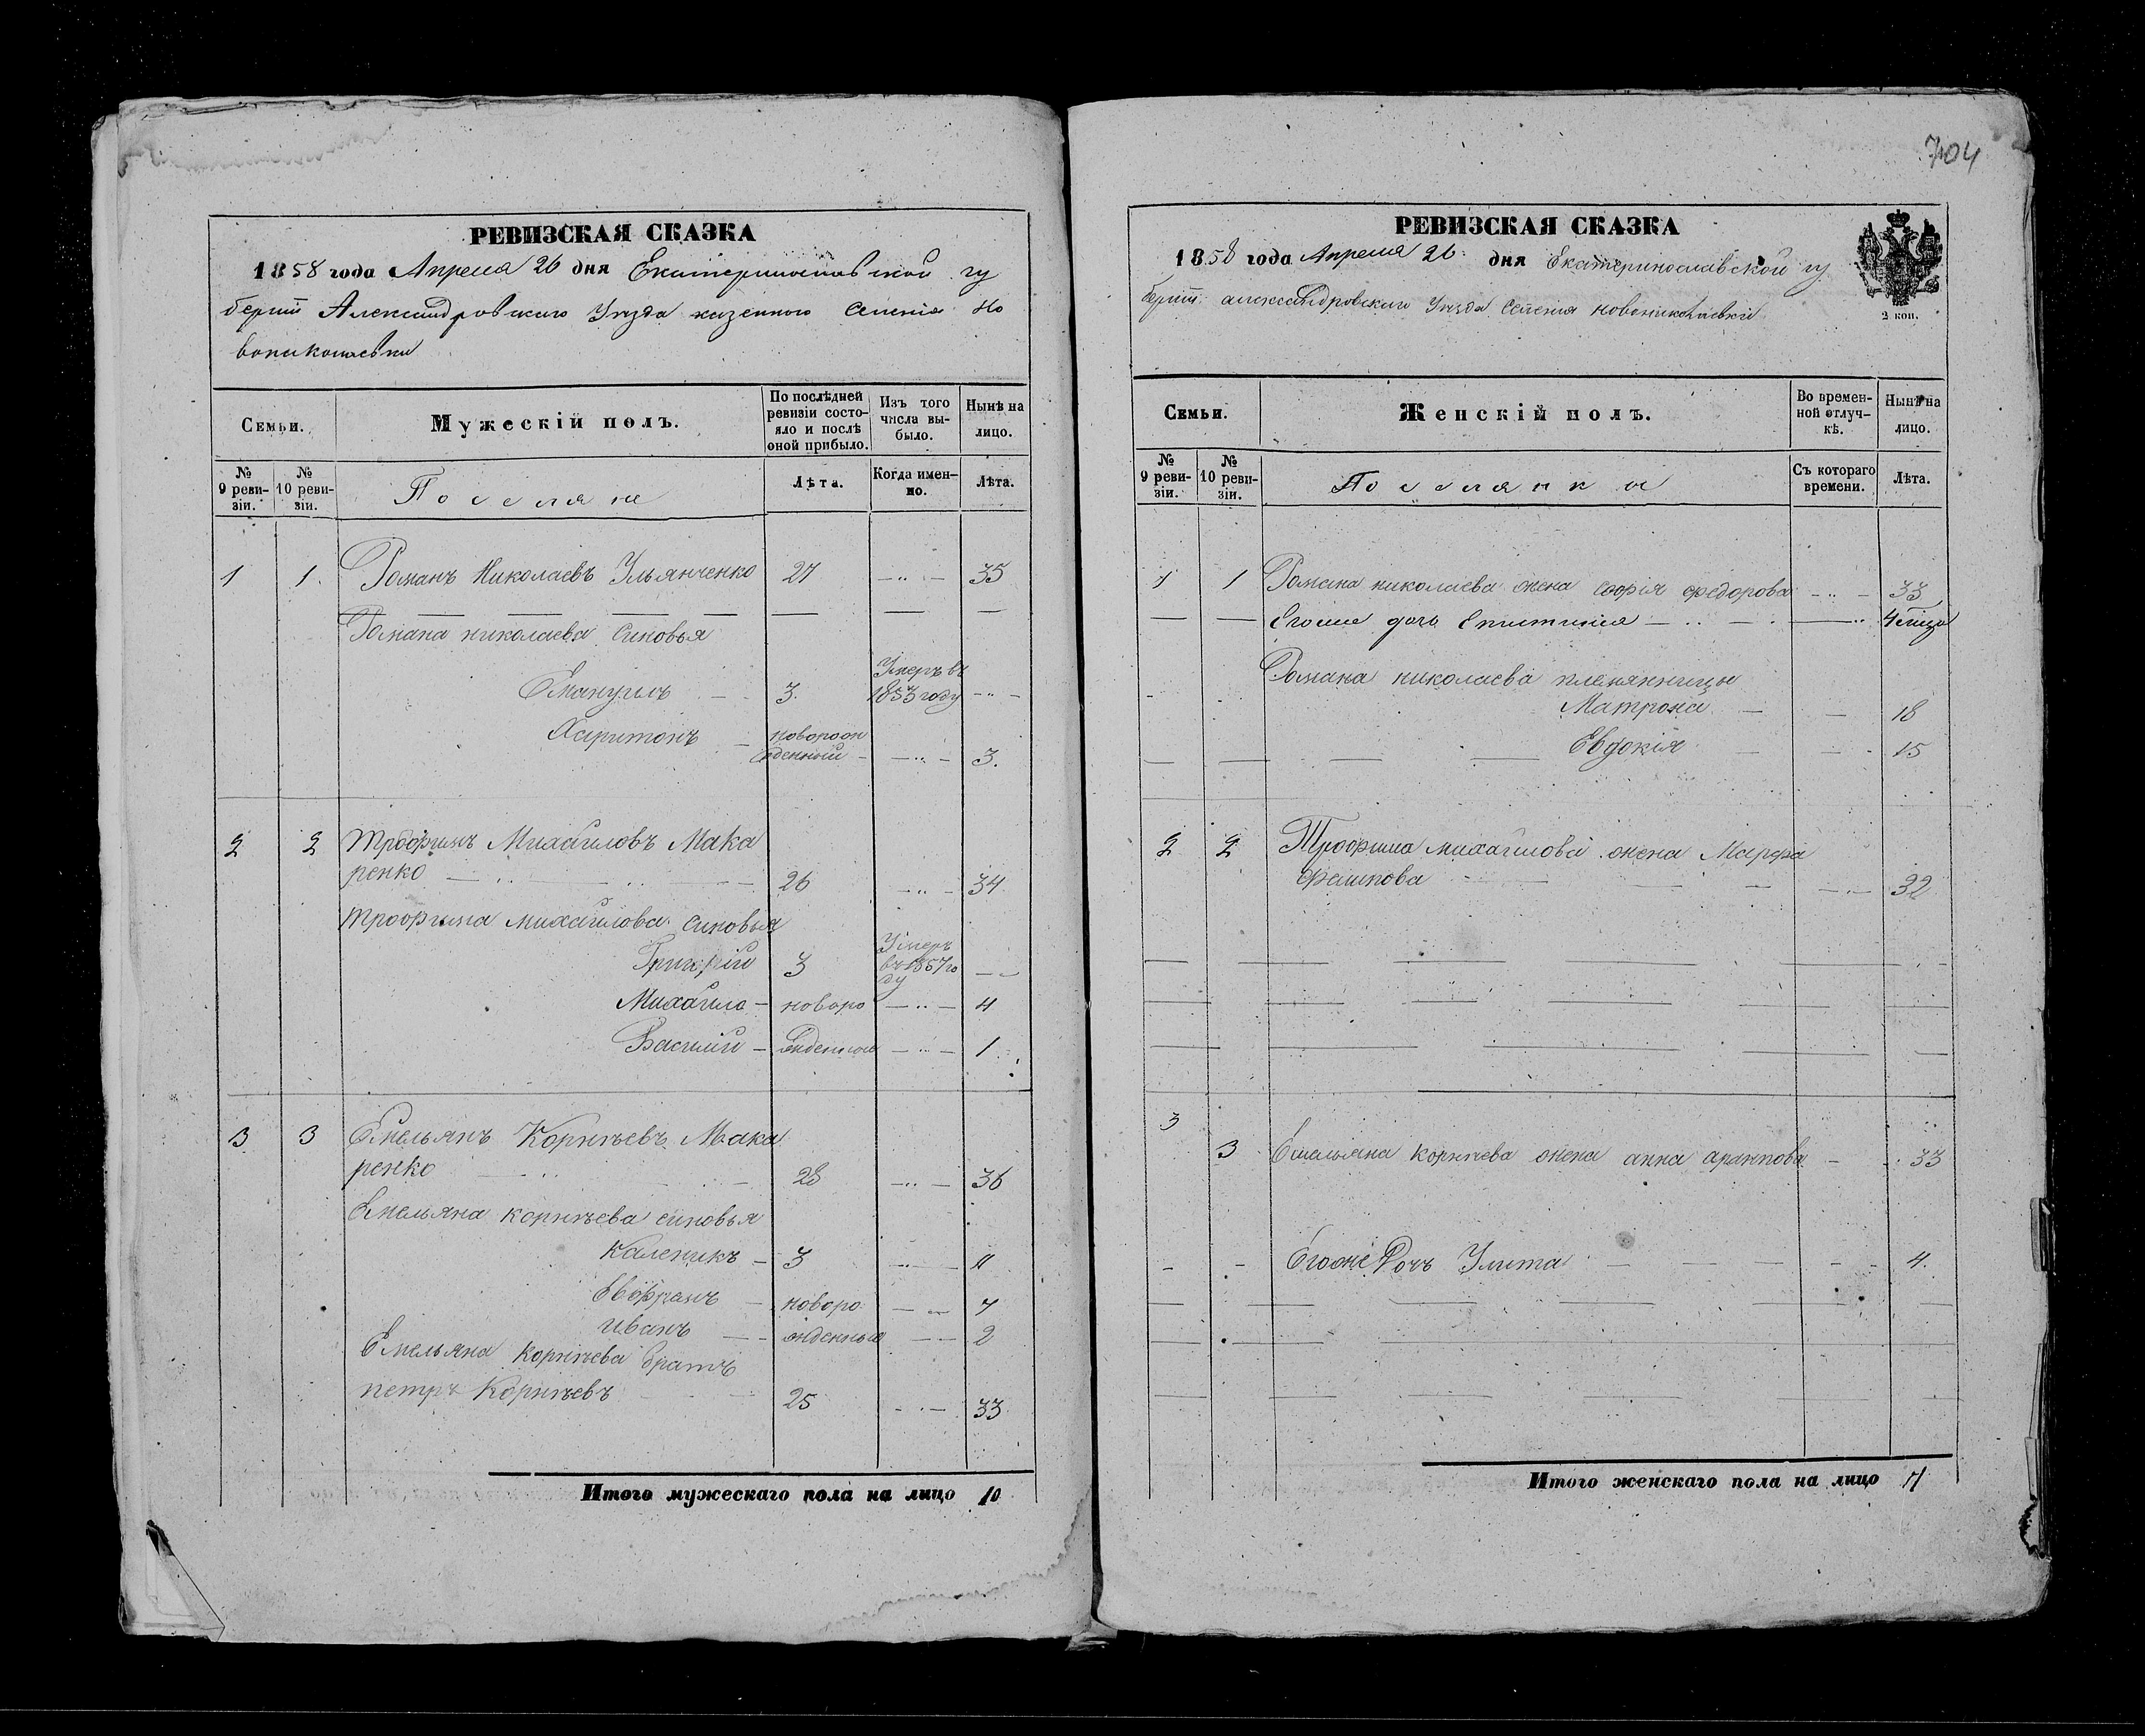 704
РЕВИЗСКАЯ СКАЗКА
1858 года Апреля 26 дня Екатеринославской гу
берніи Александровскаго Уѣзда казенного Селенія Но
вониколаевки
Семьи.
Мужескій полъ.
По послѣдней ревизіи состо-
яло и послѣ оной прибыло.
Изъ того числа вы-
было.
Нынѣ на лицо.
№ 9 реви-
зіи.
№ 10 реви-
зіи.
Поселяне
Лѣта.
Когда имен-
но.
Лѣта.
1 1. Романъ Николаевъ Ульянченко 27 35
Романа николаева Синовья
Емануилъ 3. Умеръ въ 1853 году
Харитонъ новорож
денный 3.
2 2 Трофимъ Михайловъ Мака
ренко 26 34
Трофима михайлова Синовья
Григорій 3 Умеръ въ 1857 го
ду
Михайло новоро 4
Василій жденные 1
3 3 Емельянъ Корнѣевъ Мака
ренко 28 36
Емельяна корнѣева синовья
Каленикъ 3 11
Евфрамъ новоро 7
иванъ жденные 2
Емельяна Корнѣева братъ
петръ Корнѣевъ 25 33
Итого мужескаго пола на лицо 10
РЕВИЗСКАЯ СКАЗКА
1858 года Апреля 26 дня Екатеринославской гу
берніи александровскаго Уѣзда Селенія новониколаевки
2 коп.
Семьи.
Женскій полъ.
Во времен-
ной отлуч-
кѣ.
Нынѣ на лицо.
№ 9 реви-
зіи.
№ 10 реви-
зіи.
Поселянки
Съ котораго времени.
Лѣта.
1 1 Романа николаева жена софія федорова 33
Егоже дочь Епистимия 4
Романа николаева племянницы
Матрона 18
Евдокія 15
2 2 Трофима михайлова жена Марфа
Филипова 32
3
3 Емельяна корнѣева жена анна архипова 33
Егоже Дочь Улита 4.
Итого женскаго пола на лицо 7